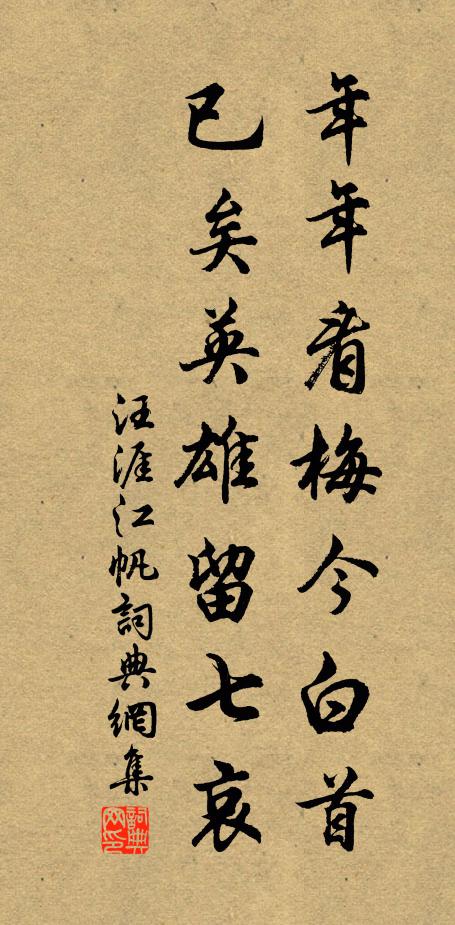 年年看梅今白首
已矣英雄留七哀
汪涯江帆詞典網集
詞典網印